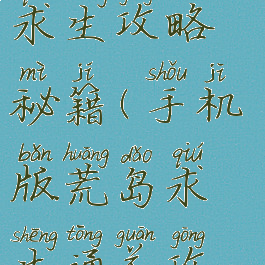 求生攻略
mì jí shǒu jī
秘籍(手机
bǎn huāng dǎo qiú
版荒岛求
shēng tōng guān gōng
生通关攻